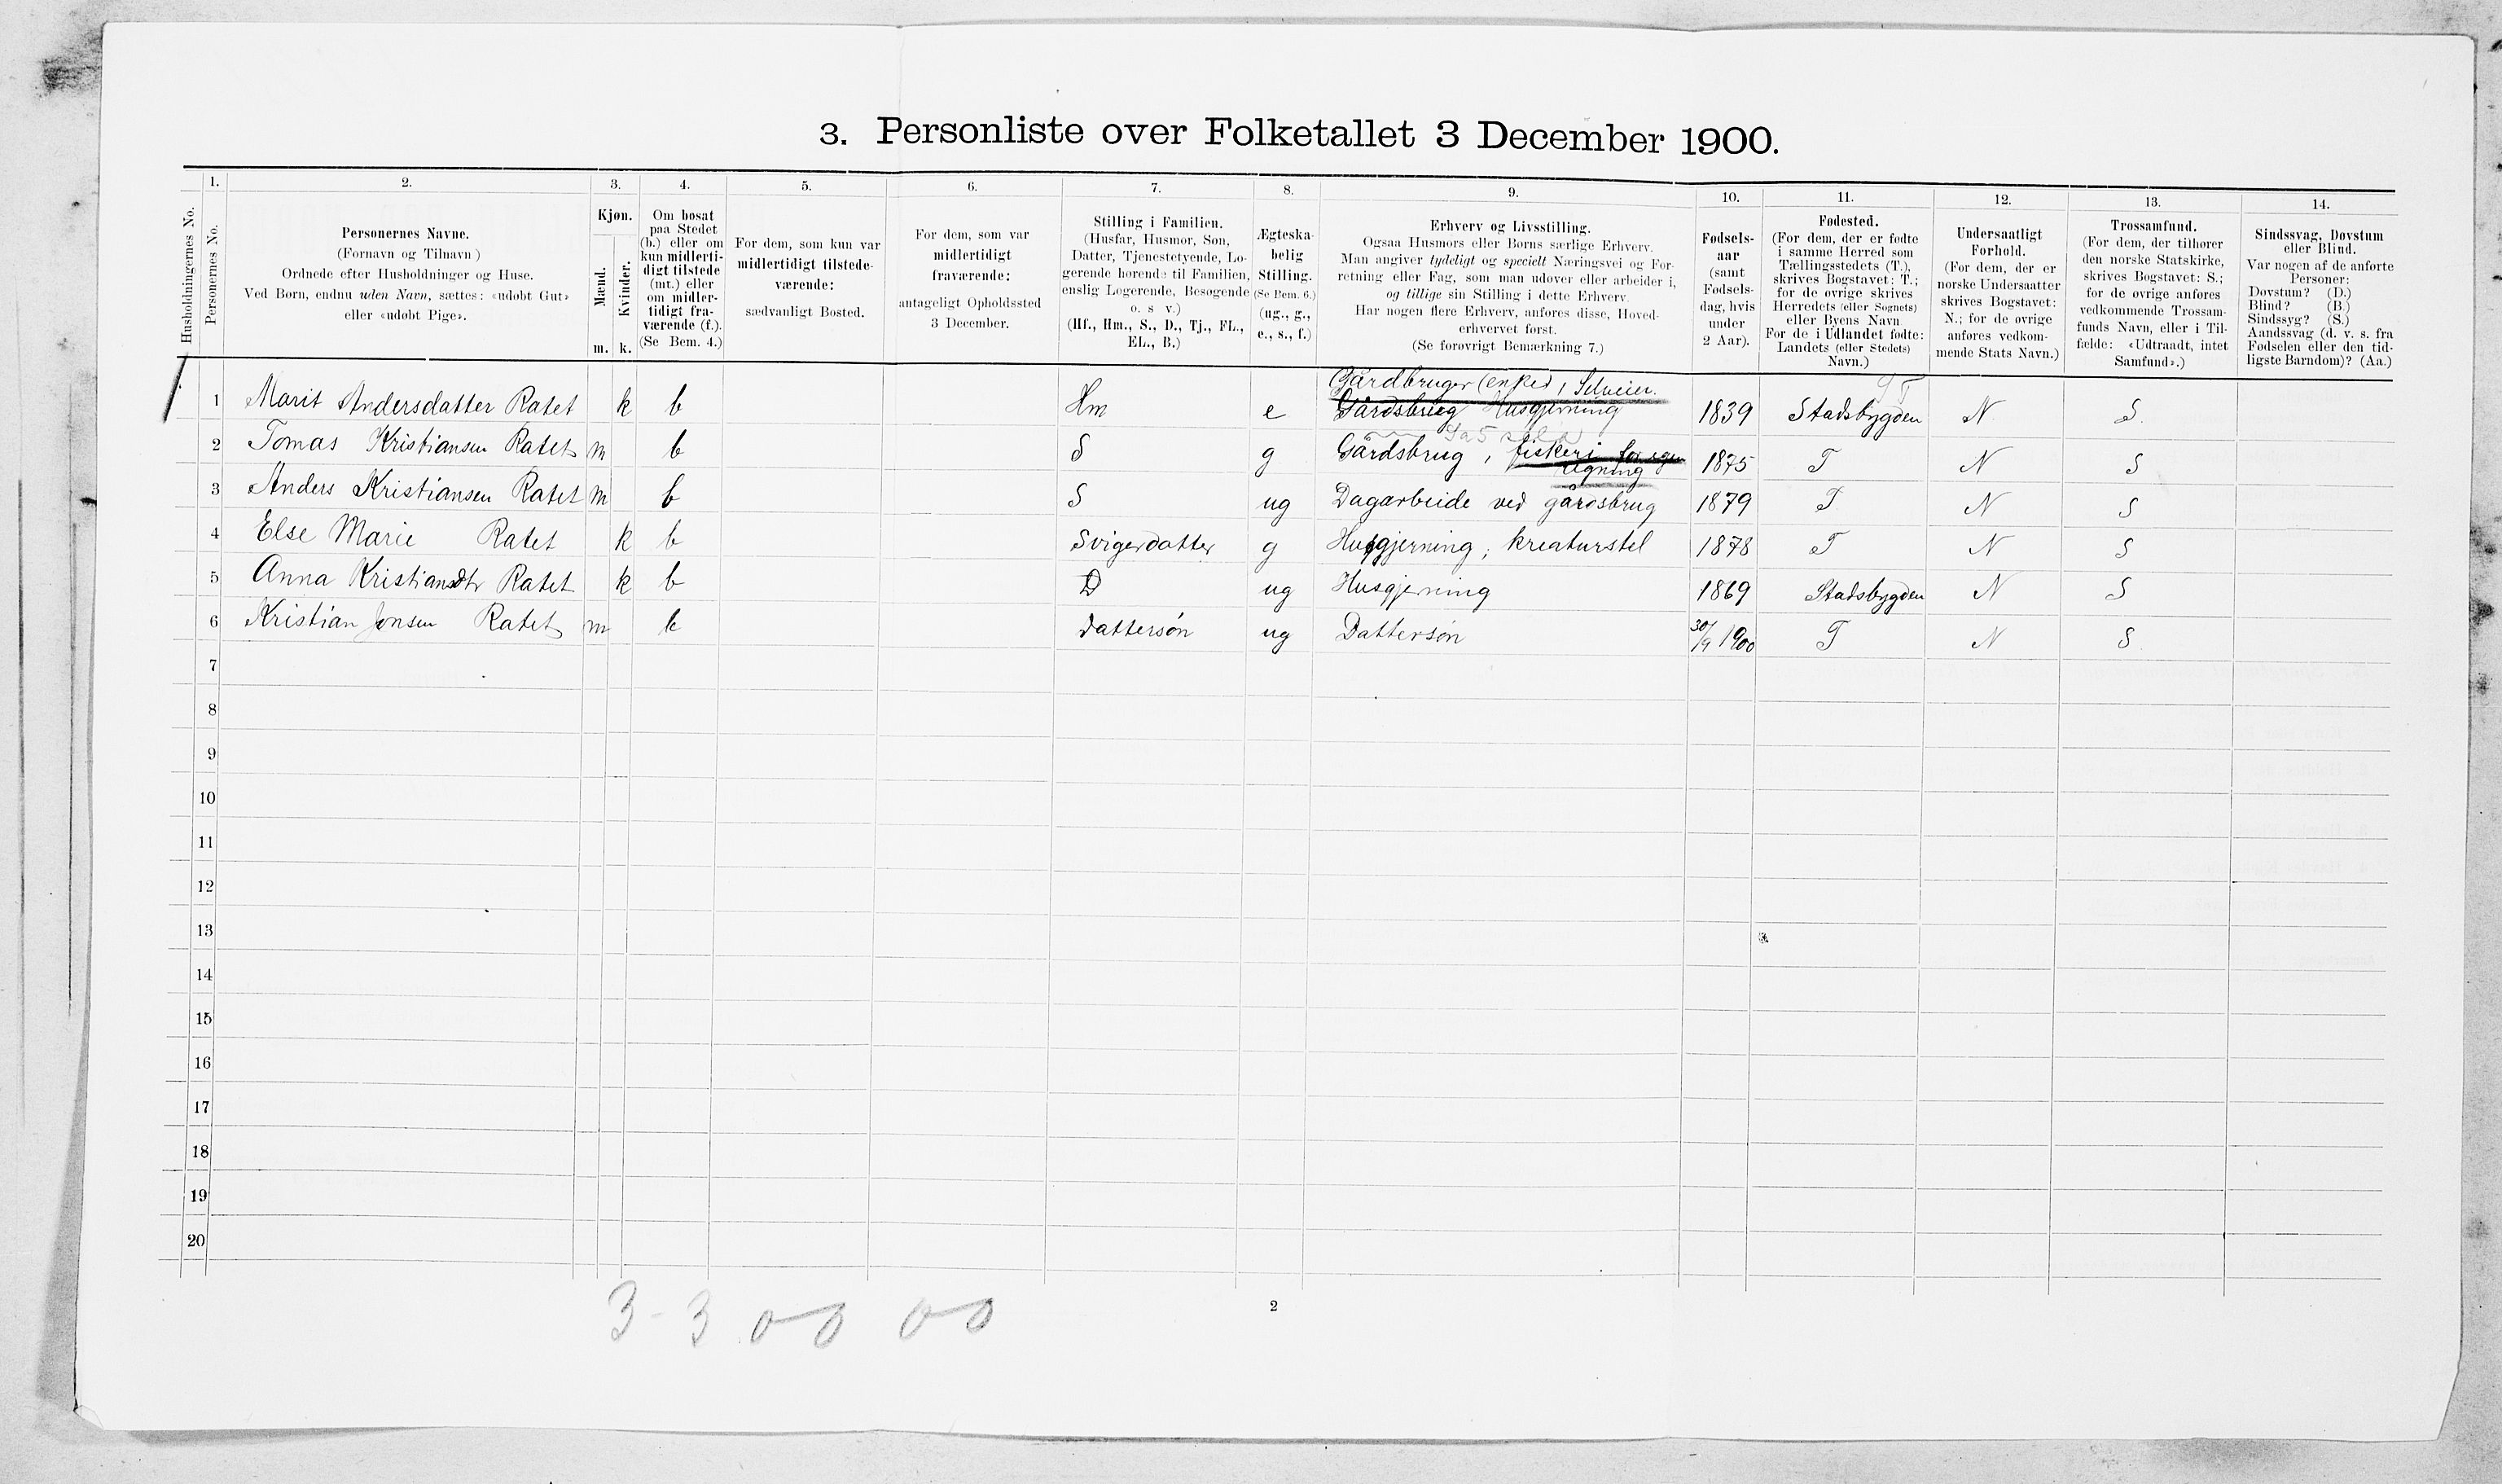 3. Personliste over Folketallet 3 December 1900.
1. 2. 3. 4. 5. 6. 7. 8. 9. 10. 11. 12. 13. 14.
Husholdningernes No.
Personernes No.
Personernes Navne.
(Fornavn og Tilnavn)
Ordnede efter Husholdninger og Huse.
Ved Børn, endnu uden Navn, sættes: «udøbt Gut»
eller «udøbt Pige».
Kjøn.
Mænd.
Kvinder.
m. k.
Om bosat
paa Stedet
(b.) eller om
kun midlerti-
digt tilstede
(mt.) eller
om midler-
tidigt fra-
værende (f.).
(Se Bem. 4.)
For dem, som kun var
midlertidigt tilstede-
værende:
sædvanligt Bosted.
For dem, som var
midlertidigt
fraværende:
antageligt Opholdssted
3 December.
Stilling i Familien.
(Husfar, Husmor, Søn,
Datter, Tjenestetyende, Lo-
gerende hørende til Familien,
enslig Logerende, Besøgende
o. s v.)
(Hf., Hm., S., D., Tj., FL.,
EL., B.)
Ægteska-
belig
Stilling.
(Se Bem. 6.)
(ug., g.,
e., s., f.)
Erhverv og Livsstilling.
Ogsaa Husmors eller Børns særlige Erhverv.
Man angiver tydeligt og specielt Næringsvei og For-
retning eller Fag, som man udøver eller arbeider i,
og tillige sin Stilling i dette Erhverv.
Har nogen flere Erhverv, anføres disse, Hoved-
erhvervet først.
(Se forøvrigt Bemærkning 7.)
Fødsels-
aar
(samt
Fødsels-
dag, hvis
under
2 Aar).
Fødested.
(For dem, der er fødte
i samme Herred som
Tællingsstedets (T.),
skrives Bogstavet: T.;
for de øvrige skrives
Herredets (eller Sognets)
eller Byens Navn.
For de i Udlandet fødte:
Landets (eller Stedets)
Navn.)
Undersaatligt
Forhold.
(For dem, der er
norske Undersaatter
skrives Bogstavet:
N.; for de øvrige
anføres vedkom-
mende Stats Navn.)
Trossamfund.
(For dem, der tilhører
den norske Statskirke,
skrives Bogstavet: S.;
for de øvrige anføres
vedkommende Trossam-
funds Navn, eller i Til-
fælde: «Udtraadt, intet
Samfund».)
Sindssvag, Døvstum
eller Blind.
Var nogen af de anførte
Personer:
Døvstum? (D.)
Blind? (B.)
Sindssyg? (S.)
Aandssvag (d. v. s. fra
Fødselen eller den tid-
ligste Barndom)? (Aa.)
Gårdbruger (enke), Selveier.
1 Marit Andersdatter Ratet k b Hm e Gårdsbrug Husgjerning 1839 Stadsbygden N S
2 Tomas Kristiansen Ratet m b S g Gårdsbrug, fiskeri for egen 1875 T N S
regning
3 Anders Kristiansen Ratet m b S ug Dagarbeide ved gårdsbrug 1879 T N S
4 Else Marie Ratet k b Svigerdatter g Husgjerning, kreaturstel 1878 T N S
5 Anna Kristiansdtr Ratet k b D ug Husgjerning 1869 Stadsbygden N S
6 Kristian Jonsen Ratet m b Dattersøn ug Dattersøn 30/9 1900 T N S
7
8
9
10
11
12
13
14
15
16
17
18
19
20
3 - 3 0-0 0-0
2